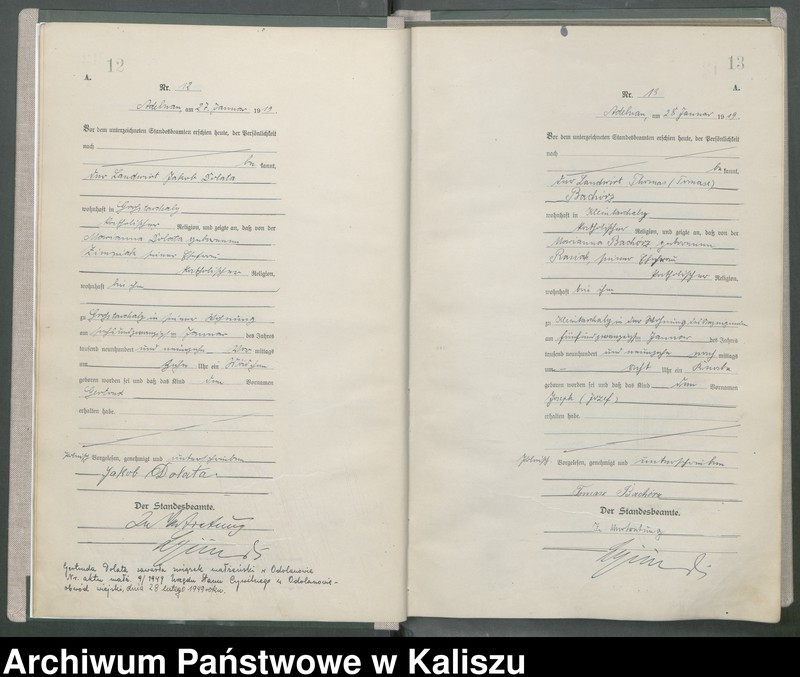 12
A.
Nr. 12
Adelnau, am 27. Januar 1919
Vor dem unterzeichneten Standesbeamten erschien heute, der Persönlichkeit
nach
be kannt,
der Landwirt Jakob Dolata
wohnhaft in
katholischer Religion, und zeigte an, daß von der
Marianna Dolata geborenen
seiner Ehefrau
katholischer Religion,
wohnhaft bei ihm
zu in seiner Wohnung
am sechsundzwanzigsten Januar des Jahres
tausend neunhundert und neunzehn Vor mittags
um Uhr ein Mädchen
geboren worden sei und daß das Kind den Vornamen
Gertrud
erhalten habe.
Vorgelesen, genehmigt und unterschrieben
Jakob Dolata
Der Standesbeamte.
In Vertretung
Gertruda Dolata zawarła związek małżeński w Odolanowie
Nr. aktu małż. 9/1949 Urzędu Stanu Cywilnego w Odolanowie-
obwód wiejski, dnia 28 lutego 1949 roku.
13
Nr. 13
A.
Adelnau, am 28. Januar 1919.
Vor dem unterzeichneten Standesbeamten erschien heute, der Persönlichkeit
nach
be kannt,
der Landwirt Thomas (Tomasz)
Bachórz
wohnhaft in
katholischer Religion, und zeigte an, daß von der
Marianna Bachórz, geborenen
seiner Ehefrau
katholischer Religion,
wohnhaft bei ihm
zu in der Wohnung des
am fünfundzwanzigsten Januar des Jahres
tausend neunhundert und neunzehn nach mittags
um acht Uhr ein Knabe
geboren worden sei und daß das Kind den Vornamen
Joseph (Józef)
erhalten habe.
Polnisch Vorgelesen, genehmigt und unterschrieben
Tomasz Bachórz
Der Standesbeamte.
In Vertretung
Archiwum Państwowe w Kaliszu